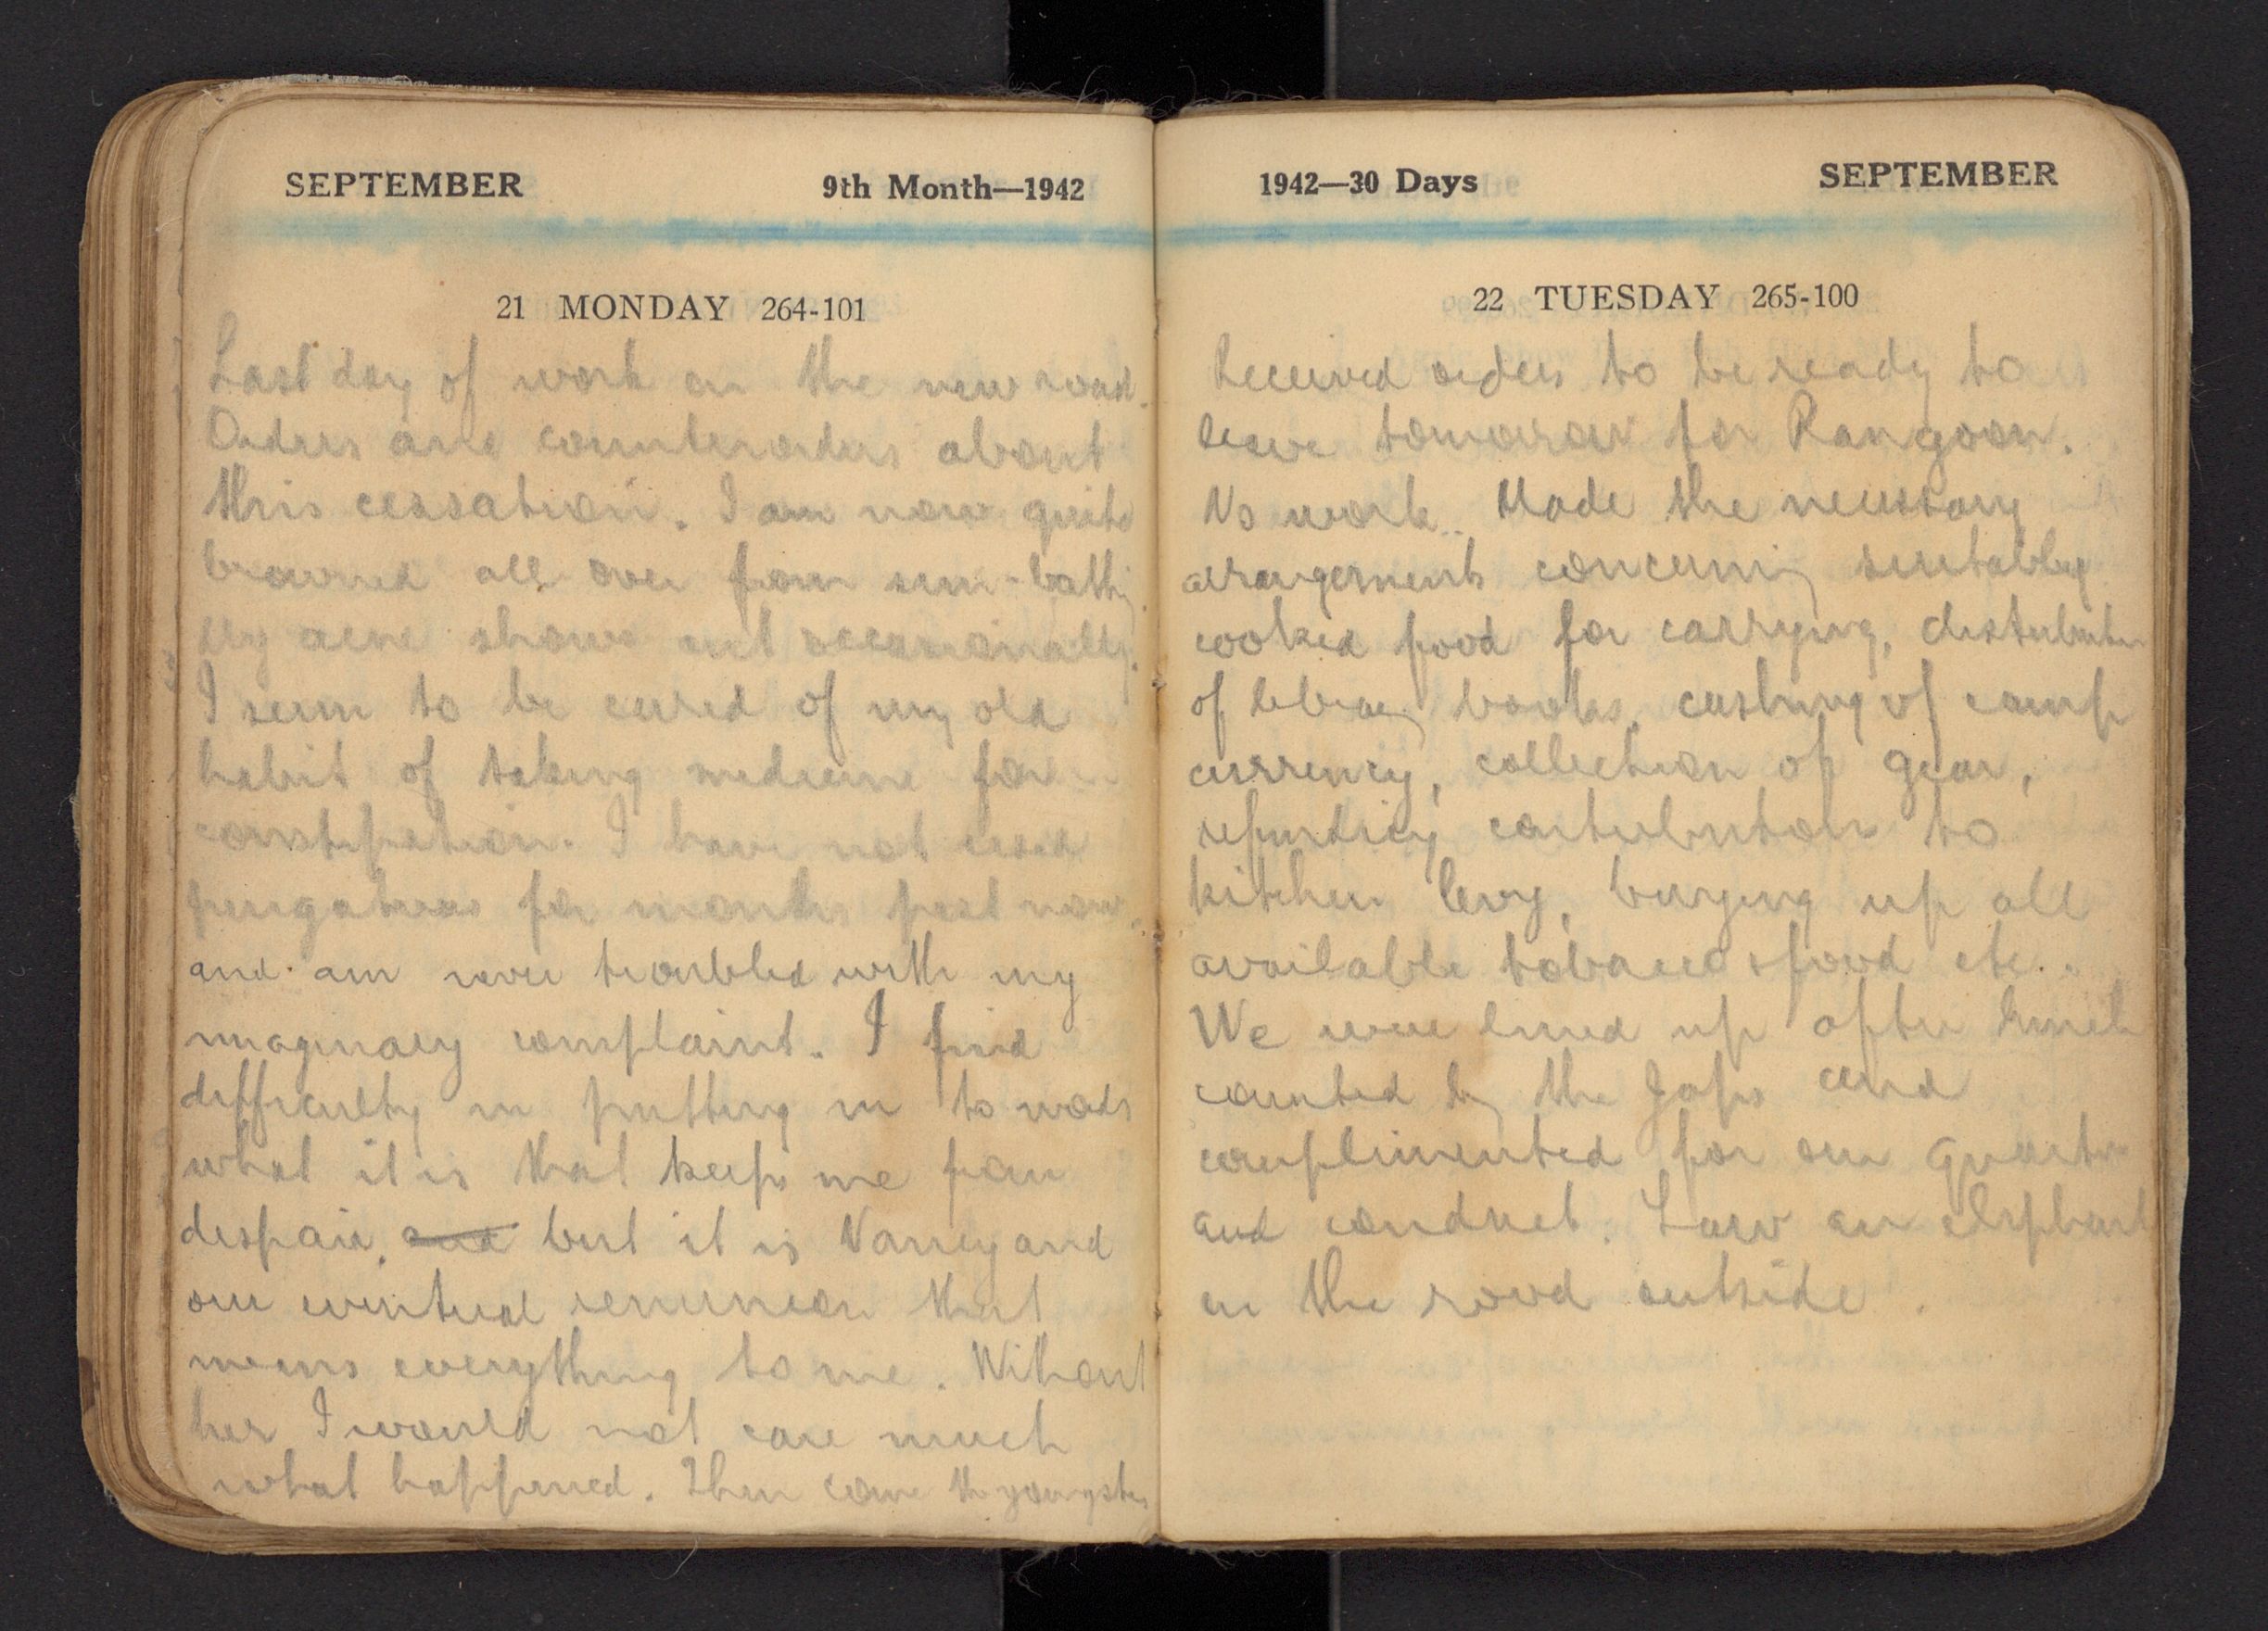 SEPTEMBER 9th Month—1942
21 MONDAY 264-101
Last day of work on the new road.
Orders and counterorders about
this cessation. I am now quite
browned all over from sun-bathing
My acne shows out occasionally.
I seem to be cured of my old
habit of taking medicine for
constipation. I have not used
purgatives for months past now
and am never troubled with my
imaginary complaint. I find
difficulty in putting in to words
what it is that keeps me from
despair. and but it is Nancy and
our eventual reunion that
means everything to me. Without
her I would not care much
what happened. Then come the youngsters
1942—30 Days SEPTEMBER
22 TUESDAY 265-100
Received orders to be ready to
leave tomorrow for Rangoon.
No work. Made the necessary
arrangements concerning suitably
cooked food for carrying, distribution
of library books, cashing of camp
currency, collection of gear,
contribution to
kitchen levy, buying up all
available tobacco & food etc.
We were lined up after lunch
counted by the Japs and
complimented for our quarters
and conduct. Saw an elephant
on the road outside.